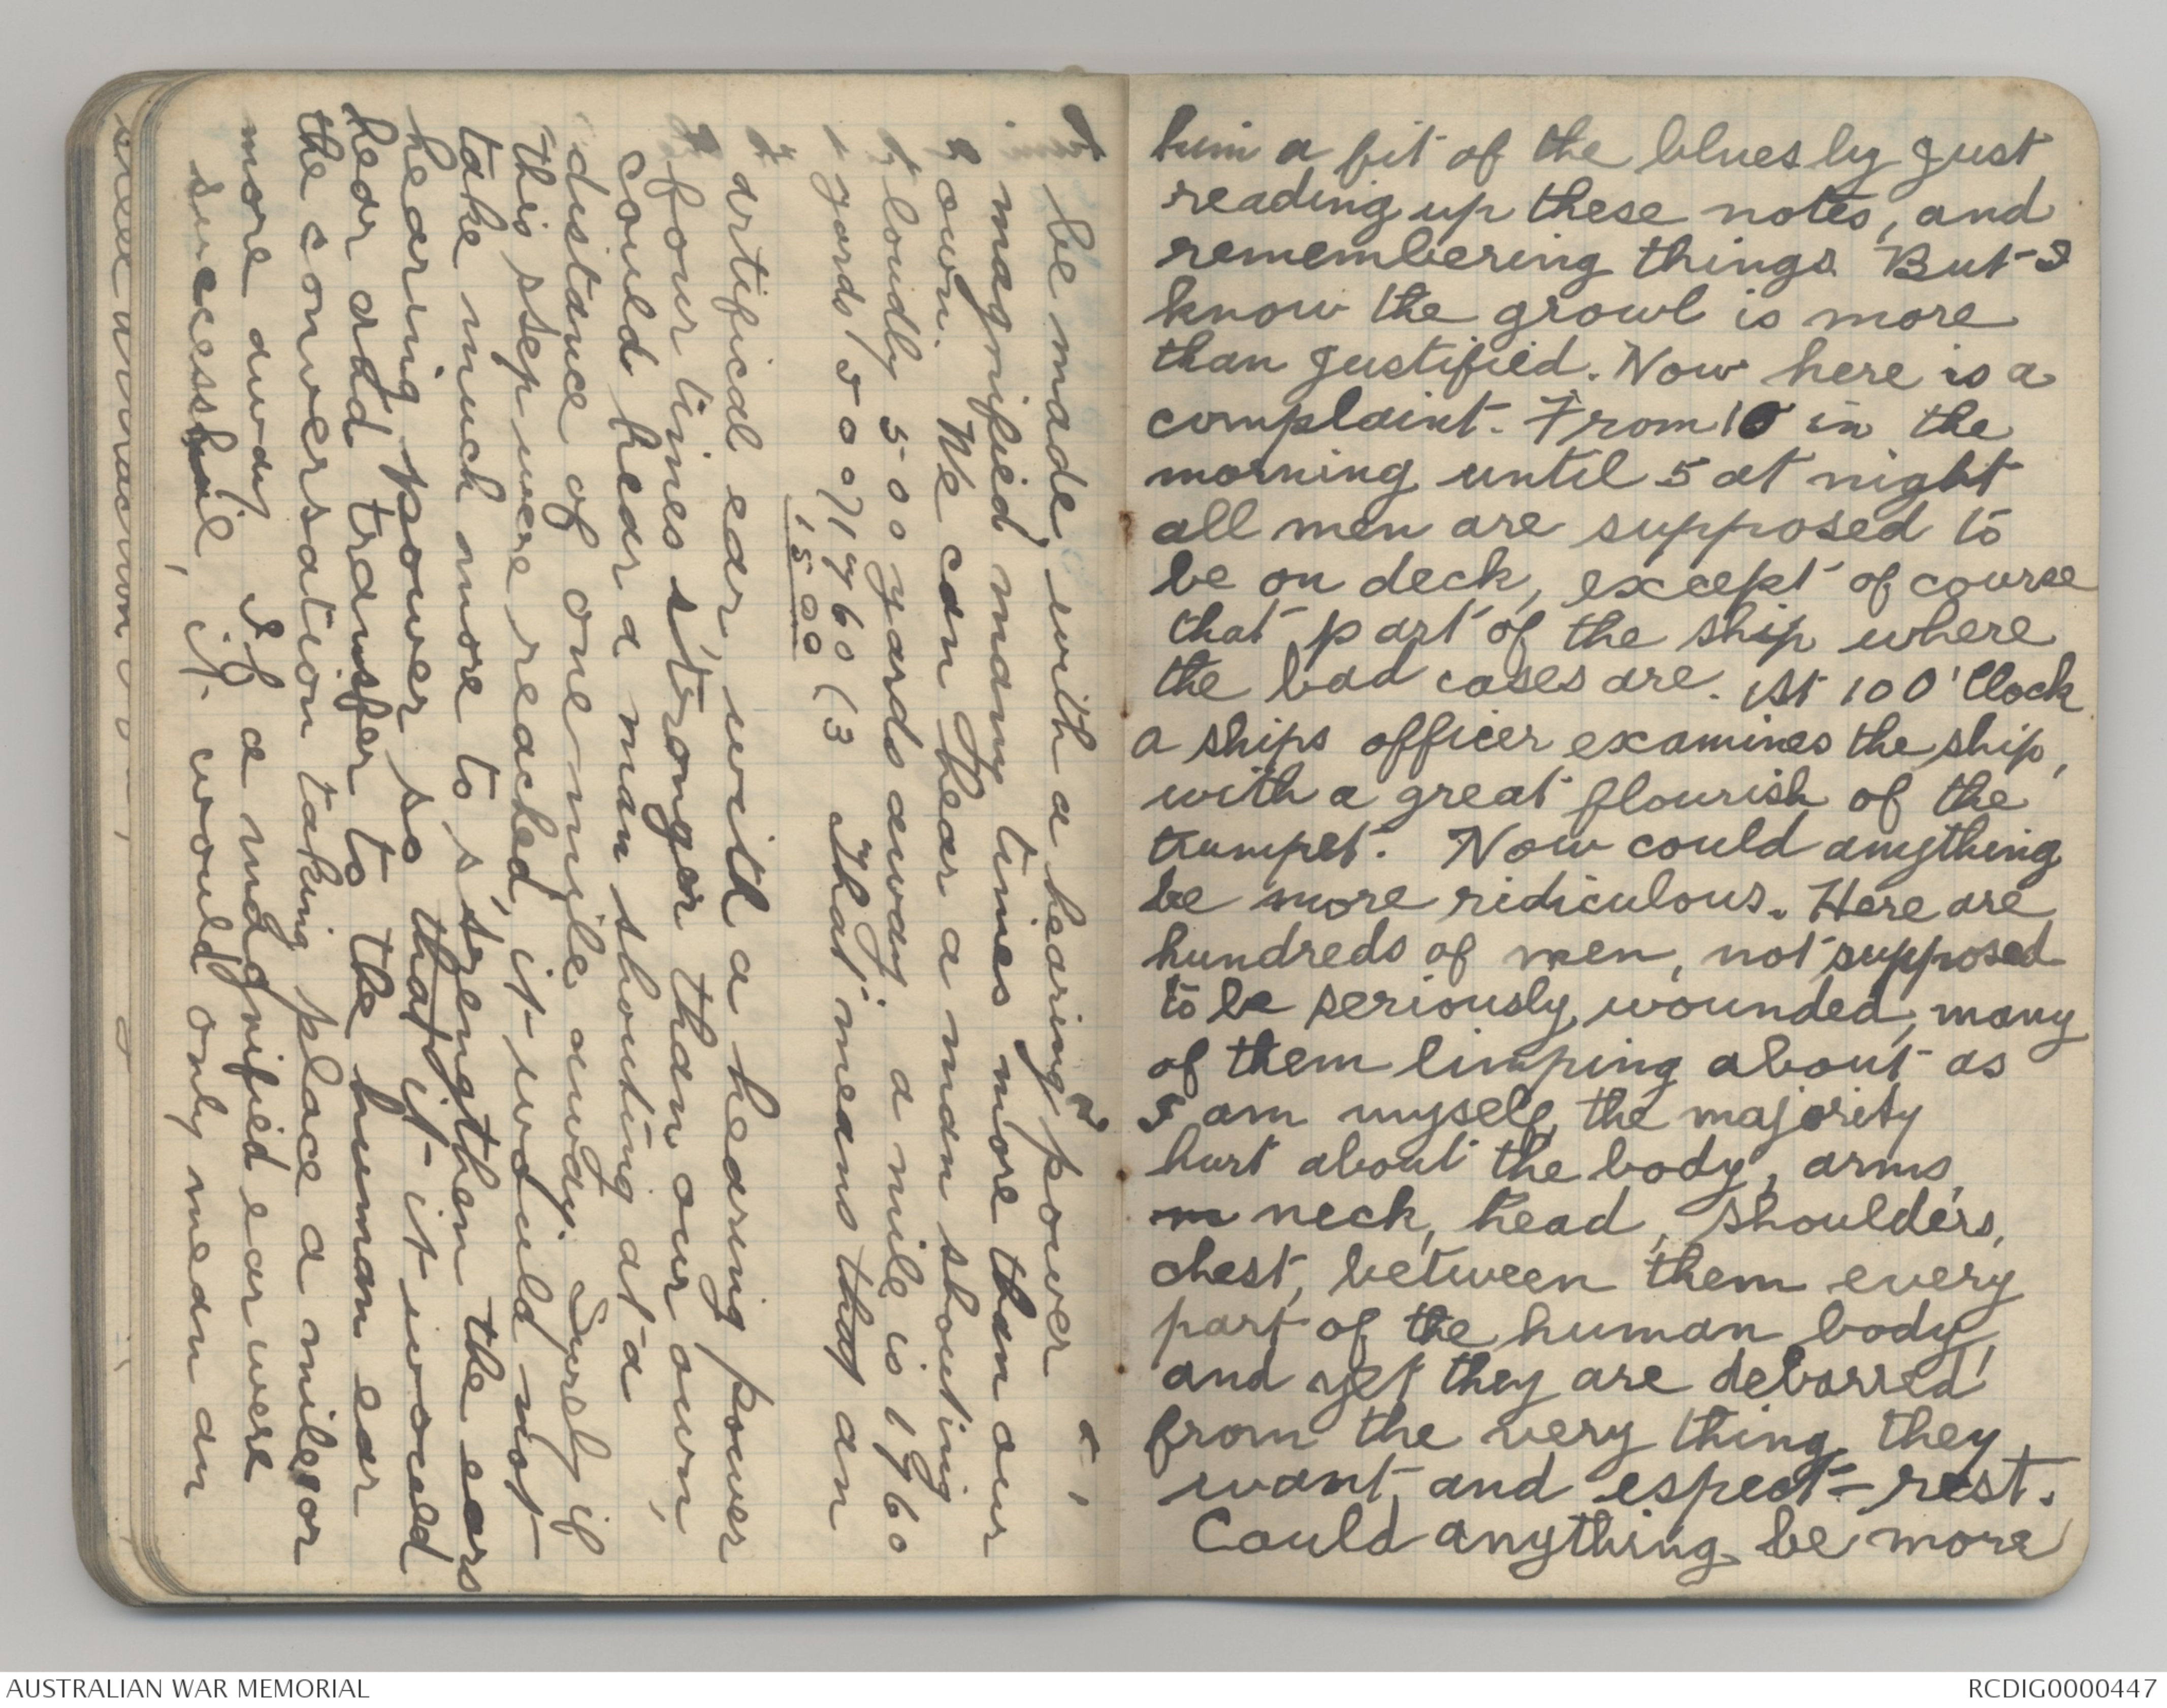 be made, with a hearing power
magnified many times more than our
own. We can hear a man shouting
loudly 500 yards away; a mile is 1760
yards 500)1760(3 That means that an
1,500
artifical ear, with a hearing power
four times stronger than our own,
could hear a man shouting at a
distance of one myle away. Surely if
this ssep were reached, it would not
take much more to s'sengthen the ears
hearing power so that it it would
hear and transfer to the human ear
the conversation taking place a mile or
more away. If a magnified ear were
successful, it would only mean an
him a fit of the blues by just
reading up these notes, and
remembering things. But I
know the growl is more
than justified. Now here is a
complaint. From 10 in the
morning until 5 at night
all men are supposed to
be on deck, except of course
that part of the ship where
the bad cases are. At 10 O'Clock
a ships officer examines the ship,
with a great flourish of the
trumpet. Now could anything
be more ridiculous. Here are
hundreds of men, not supposed
to be seriously wounded, many
of them limping about as
I am myself, the majority
hurt about the body, arms,
neck, head, shoulders,
chest, between them every
part of the human body,
and yet they are debarred
from the very thing they
want and espect – rest.
Could anything be more
AUSTRALIAN WAR MEMORIAL
RCDIG0000447